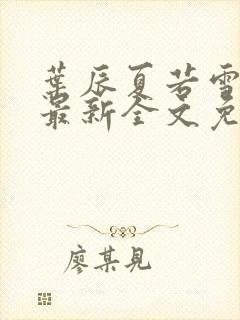 葉辰夏若雪
最新全文免
廖某見